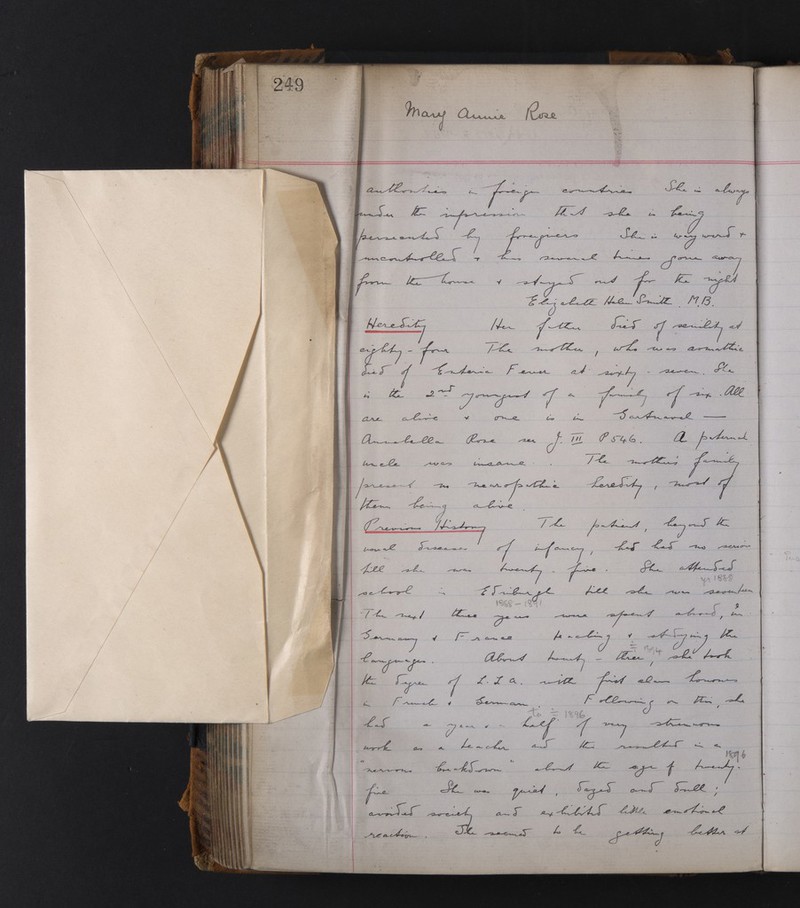 249
Mary Annie Rose
authorities in foreign countries She is always
under the impression that she is being
persecuted by foreigners She is wayward &
uncontrolled & has several times gone away
from the house & stayed out for the night
Elizabeth Helen Smith. M.B.
Heredity Her father died of senility at
eighty-four The mother, who was
died of Enteric Fever at sixty-seven. She
is the 2nd youngest of a family of six. All
are alive & one is in Gartnavel —
Annabella Rose see J. III P546. A paternal
uncle was insane. The mother's family
present no neuropathic heredity, most of
them being alive.
Previous History The patient, beyond the
usual diseases of infancy, had had no
till she was twenty-five. She attended
yr 1888
school in Edinburgh till she was seventeen
1888-1891
The next three years were spent abroad, in
Germany & France teaching & studying the
languages. About twenty-three, she took
the degree of L.L.A. with first class honours
in French & German. Following on this, she
1896
had a year & a half of very strenuous
work as a teacher and this resulted in a
1896
"nervous breakdown" about the age of twenty-
five She was quiet, dazed and dull;
avoided society and exhibited little emotional
reaction. She seemed to be getting better at